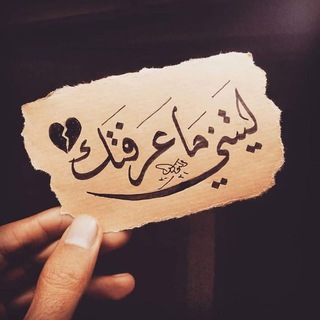 ليتني مَا عَرفتَك